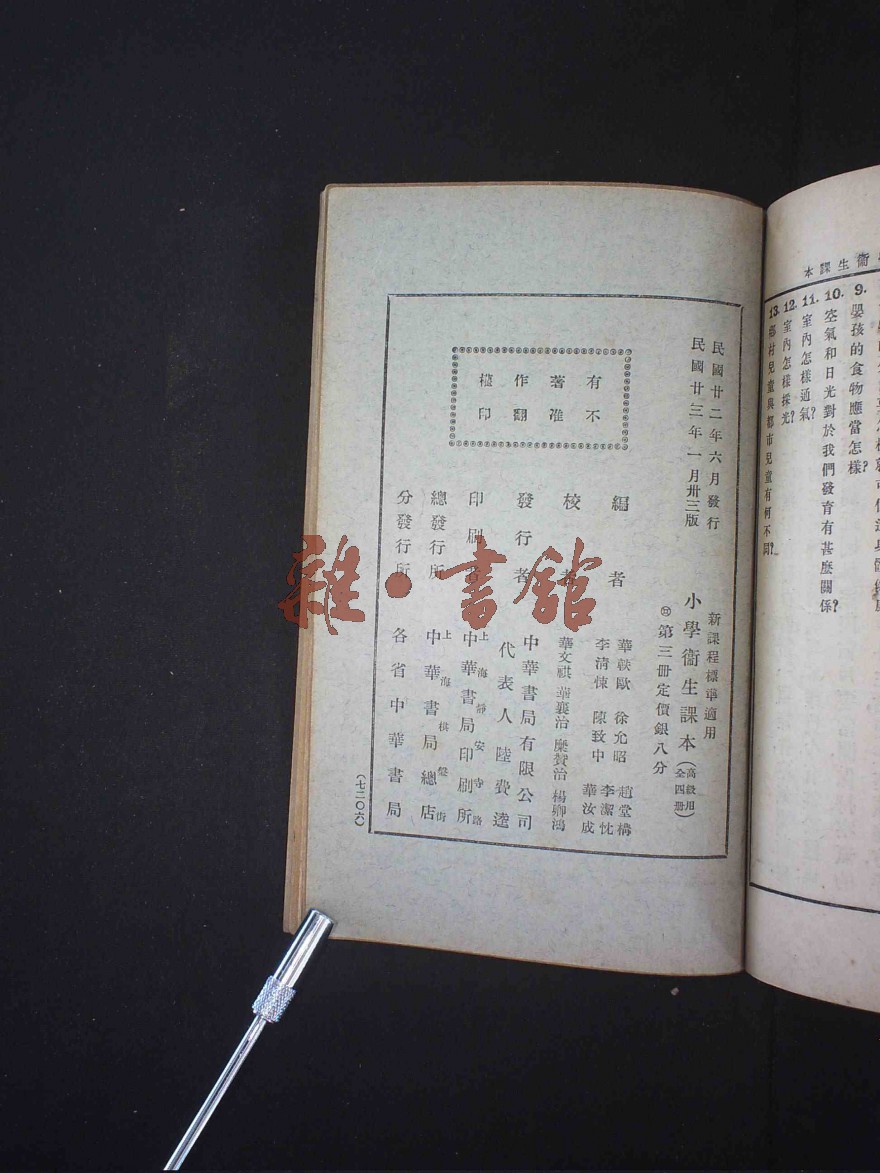 衞生課本
9. 嬰孩的食物應當怎樣?
10. 空氣和日光對於我們發育有甚麼關係?
11. 室內怎樣通氣?
12. 室內怎樣採光?
13. 鄉村兒童與都市兒童有何不同?
民國廿二年六月發行
民國廿三年一月卅三版
有著作權
不准翻印
新課程標準適用
小學衞生課本(高級用全四册)
第三册定價銀八分
編者
徐允昭 趙堂構
李清悚 陳致中 李潔忱
華汝成
校者
華文祺 華襄治 糜贊治 楊卿鴻
發行者
中華書局有限公司
代表人 陸費逵
印刷者
上海靜安寺路
中華書局印刷所
總發行所
上海棋盤街
中華書局總店
分發行所
各省中華書局
(七二〇六)
雜·書館